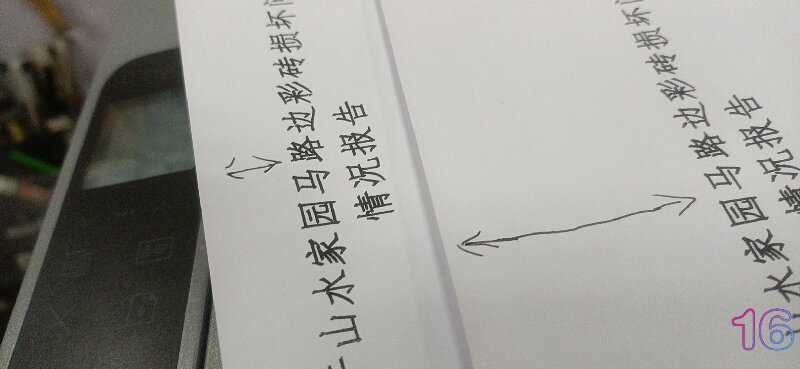 山水家园马路边彩砖损坏
情况报告
山水家园马路边彩砖损坏
情况报告
16